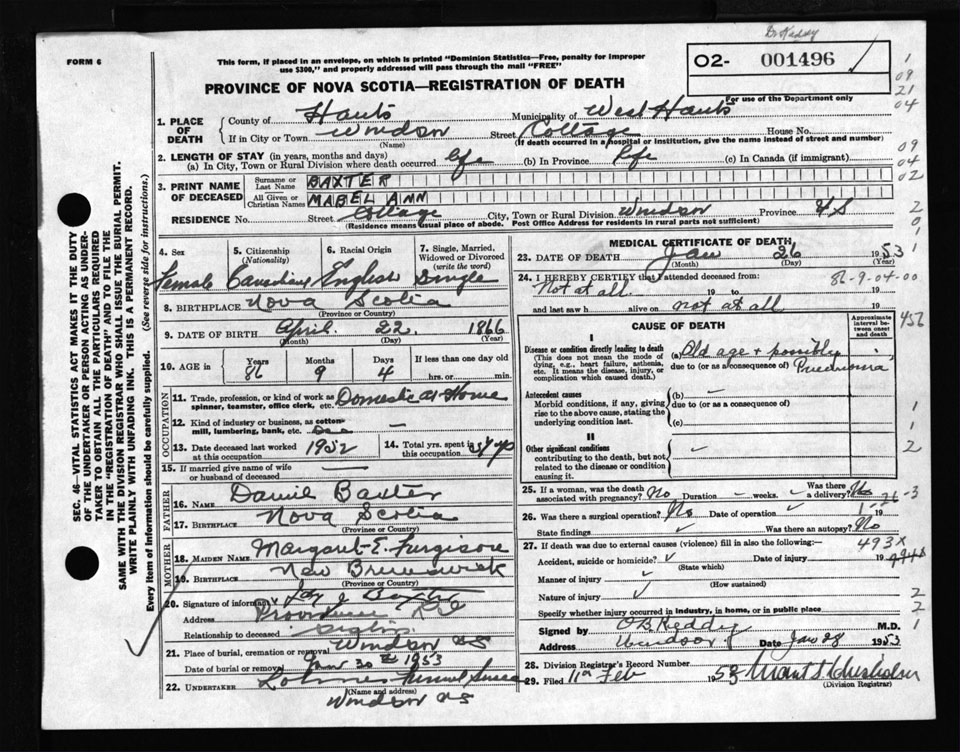 Dr Keddy
FORM 6
This form, if placed in an envelope, on which is printed "Dominion Statistics—Free, penalty for improper
use $300," and properly addressed will pass through the mail "FREE"
O2- 001496
For use of the Department only
PROVINCE OF NOVA SCOTIA—REGISTRATION OF DEATH
1. PLACE OF DEATH
County of Hants Municipality of West Hants
If in City or Town Windsor Street Cottage House No.
(Name) (If death occurred in a hospital or institution, give the name instead of street and number)
2. LENGTH OF STAY (in years, months and days)
(a) In City, Town or Rural Division where death occurred life (b) In Province life (c) In Canada (if immigrant)
3. PRINT NAME OF DECEASED
Surname or Last Name BAXTER
All Given or Christian Names MABEL ANN
RESIDENCE No. Street Cottage City, Town or Rural Division Windsor Province NS
(Residence means usual place of abode. Post Office Address for residents in rural parts not sufficient)
4. Sex Female
5. Citizenship (Nationality) Canadian
6. Racial Origin English
7. Single, Married, Widowed or Divorced (write the word) Single
8. BIRTHPLACE Nova Scotia
(Province or Country)
9. DATE OF BIRTH April 22 1866
(Month) (Day) (Year)
10. AGE in Years 86 Months 9 Days 4 If less than one day old hrs. or min.
OCCUPATION
11. Trade, profession, or kind of work as spinner, teamster, office clerk, etc. Domestic at Home
12. Kind of industry or business, as cotton-mill, lumbering, bank, etc. —
13. Date deceased last worked at this occupation 1952
14. Total yrs. spent in this occupation
15. If married give name of wife or husband of deceased
FATHER
16. NAME Daniel Baxter
17. BIRTHPLACE Nova Scotia
(Province or Country)
MOTHER
18. MAIDEN NAME Margaret E. Furgisore
19. BIRTHPLACE New Brunswick
(Province or Country)
20. Signature of informant Baxter
Address Providence
Relationship to deceased
21. Place of burial, cremation or removal Windsor NS
Date of burial or removal Jan 30th 1953
22. UNDERTAKER Funeral
(Name and address)
Windsor NS
MEDICAL CERTIFICATE OF DEATH
23. DATE OF DEATH Jan 26 1953
(Month) (Day) (Year)
24. I HEREBY CERTIFY that I attended deceased from:
Not at all 19 to 19
and last saw h alive on not at all 19
86-9-04-00
CAUSE OF DEATH
Approximate interval between onset and death
I
Disease or condition directly leading to death
(This does not mean the mode of dying, e.g., heart failure, asthenia, etc. It means the disease, injury, or complication which caused death.)
(a) Old age + possibly
due to (or as a consequence of) Pneumonia
Antecedent causes
Morbid conditions, if any, giving rise to the above cause, stating the underlying condition last.
(b)
due to (or as a consequence of)
(c)
II
Other significant conditions
contributing to the death, but not related to the disease or condition causing it.
25. If a woman, was the death associated with pregnancy? No Duration — weeks. Was there a delivery? No
26. Was there a surgical operation? No Date of operation 19
State findings Was there an autopsy? No
27. If death was due to external causes (violence) fill in also the following:—
493X
Accident, suicide or homicide? Date of injury 19
(State which)
Manner of injury
(How sustained)
Nature of injury
Specify whether injury occurred in industry, in home, or in public place
Signed by O B Keddy M.D.
Address Windsor Date Jan 28 1953
28. Division Registrar's Record Number
29. Filed 11th Feb 1953
(Division Registrar)
SEC. 46—VITAL STATISTICS ACT MAKES IT THE DUTY
OF THE UNDERTAKER OR PERSON ACTING AS UNDER-
TAKER TO OBTAIN ALL THE PARTICULARS REQUIRED
IN THE "REGISTRATION OF DEATH" AND TO FILE THE
SAME WITH THE DIVISION REGISTRAR WHO SHALL ISSUE THE BURIAL PERMIT.
WRITE PLAINLY WITH UNFADING INK. THIS IS A PERMANENT RECORD.
Every item of information should be carefully supplied. (See reverse side for instructions.)
1
09
21
04
09
04
02
2
0
0
1
456
1
1
2
26-3
2
2
1